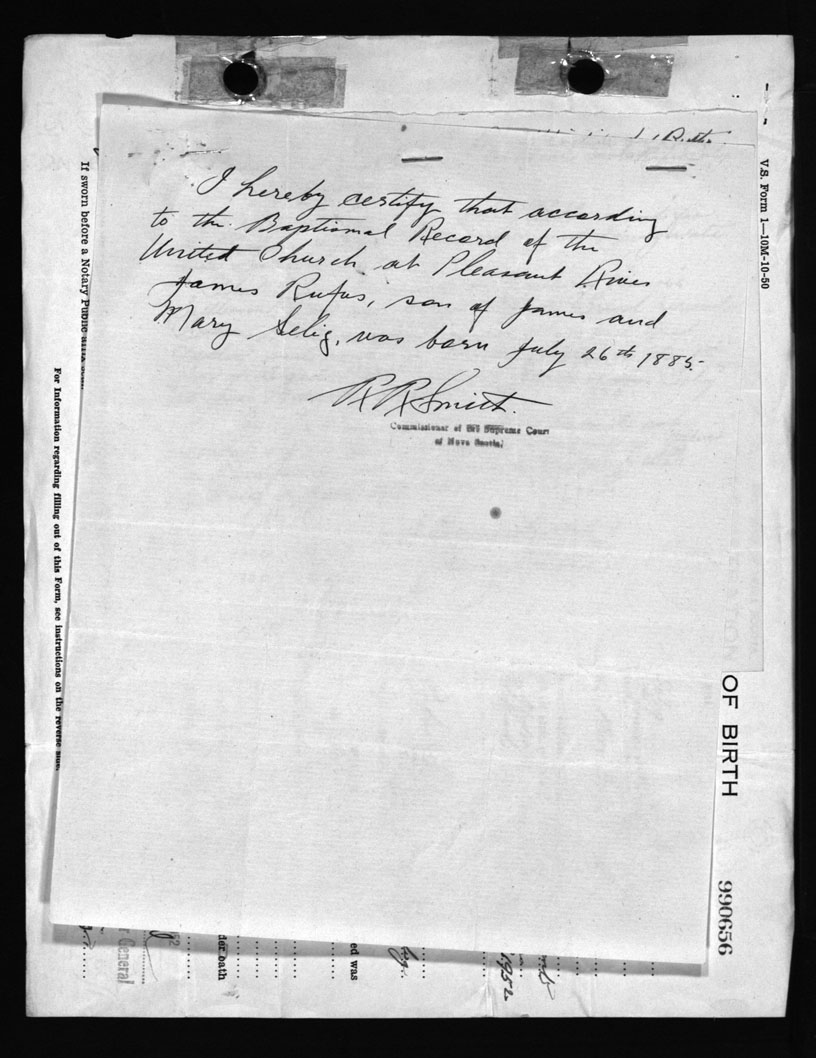 I hereby certify that according
to the Baptismal Record of the
United Church at Pleasant River
James Rufus, son of James and
Mary Selig, was born July 26th 1885.
R R Smith.
Commissioner of the Supreme Court
of Nova Scotia.
V.S. Form 1—10M-10-50
OF BIRTH
990656
If sworn before a Notary Public
For Information regarding filling out of this Form, see instructions on the reverse side.
General
52
der oath
ed was
1952